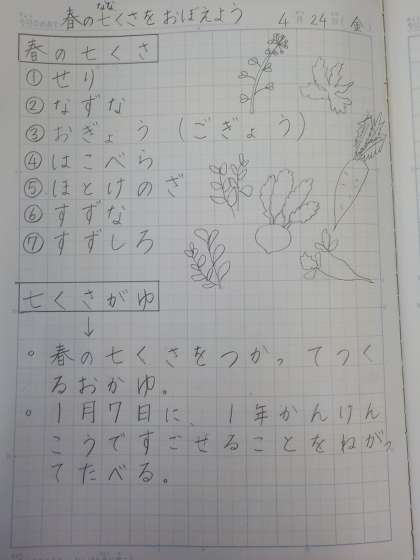 春の七くさをおぼえよう 4月24日(金)
なな
春の七くさ
①せり
②なずな
③おぎょう(ごぎょう)
④はこべら
⑤ほとけのざ
⑥すずな
⑦すずしろ
七くさがゆ
↓
。春の七くさをつかってつく
るおかゆ。
。1月7日に、1年かんけん
こうですごせることをねがっ
てたべる。